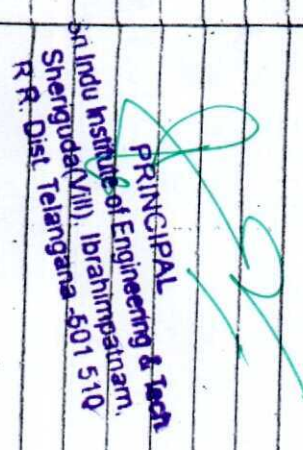 PRINCIPAL
Sri Indu Institute of Engineering & Tech
Sheriguda(Vill), Ibrahimpatnam,
R.R. Dist. Telangana -501 510